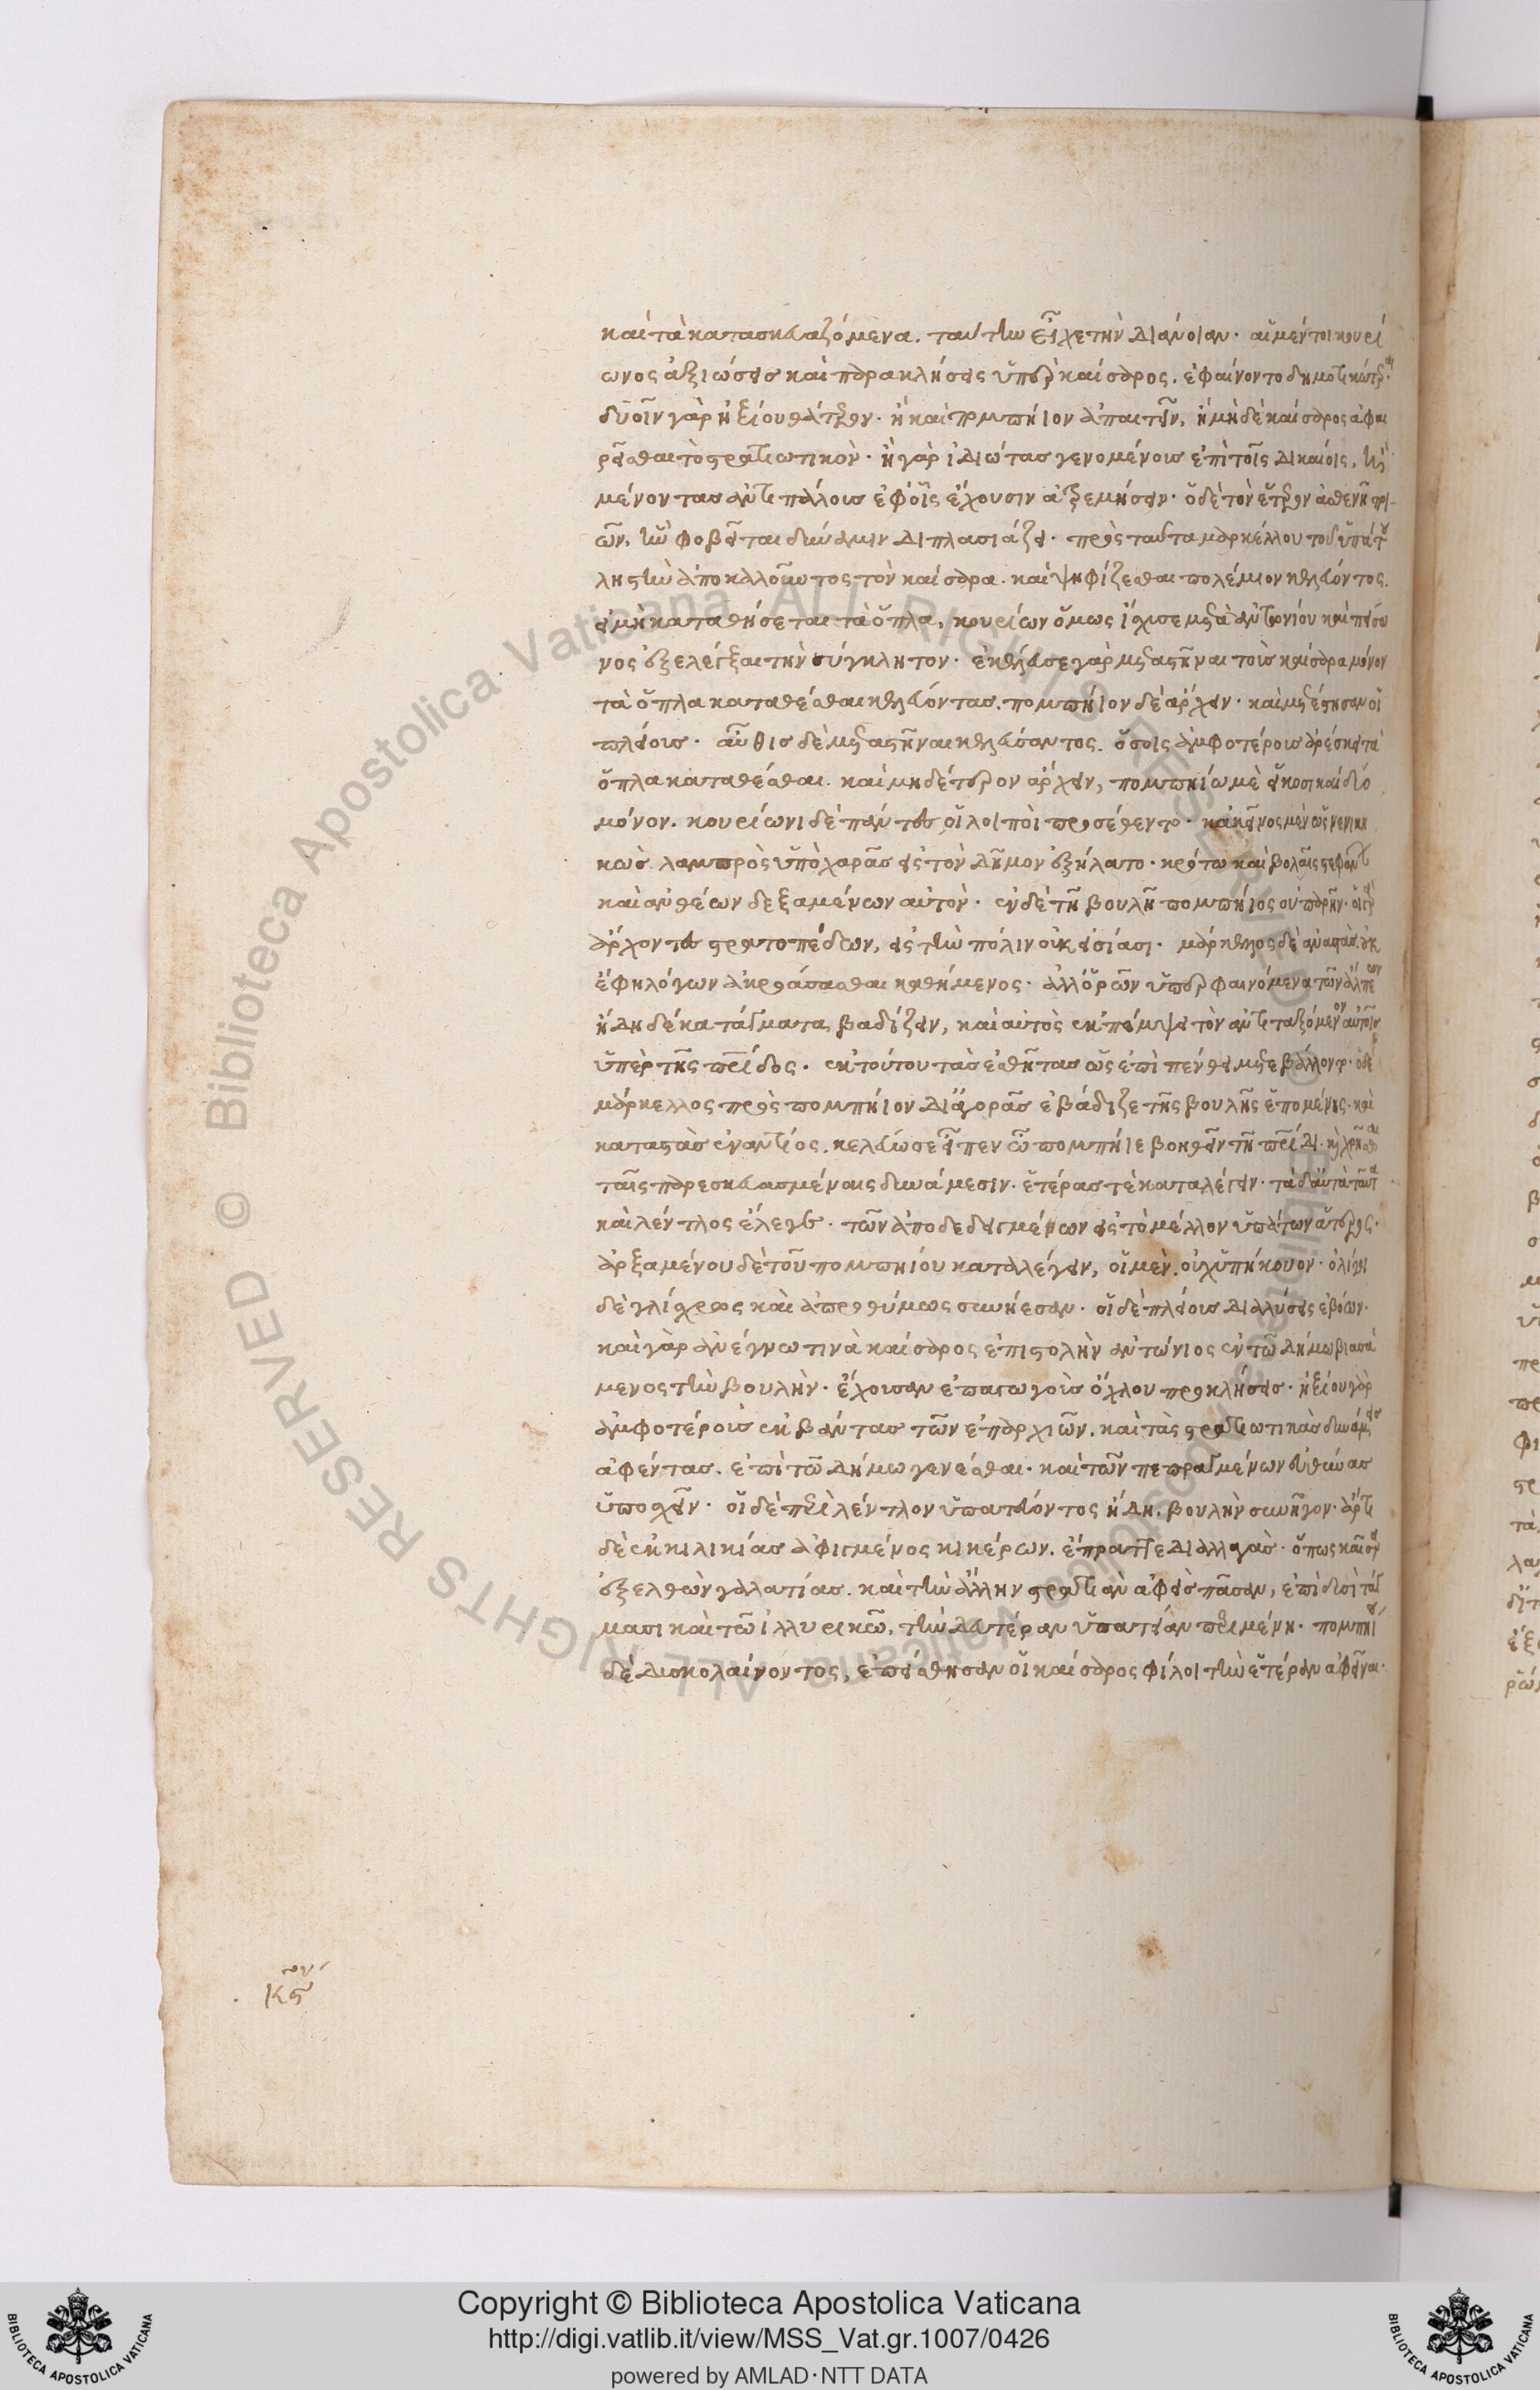 καὶ τὰ κατασκευαζόμενα. ταύτην εἶχε τὴν διάνοιαν· αἱ μέντοι κουρί
ωνος ἀξιώσεις καὶ παρακλήσεις ὑπὲρ καίσαρος. ἐφαίνοντο δημοτικώτεραι·
δυοῖν γὰρ ἠξίου θάτερον· ἢ καὶ πομπήιον ἀπαιτεῖν, ἢ μηδὲ καίσαρος ἀφαι
ρεῖσθαι τὸ στρατιωτικὸν· ἢ γὰρ ἰδιώτας γενομένους ἐπὶ τοῖς δικαίοις, ἢ
μένοντας ἀντιπάλους ἐφ' οἷς ἔχουσιν ἀτρεμήσειν· ὁ δὲ τὸν ἕτερον ἀσθενῆ ποι-
ῶν, ἣν φοβεῖται δύναμιν διπλασιάζει· πρὸς ταῦτα μαρκέλλου τοῦ ὑπάτου
ληστὴν ἀποκαλοῦντος τὸν καίσαρα. καὶ ψηφίζεσθαι πολέμιον κελεύοντος.
εἰ μὴ καταθήσεται τὰ ὅπλα, κουρίων ὅμως ἴσχυσε μετὰ ἀντωνίου καὶ πείσω
νος ἐξελέγξαι τὴν σύγκλητον· ἐκέλευσε γὰρ μεταστῆναι τοὺς καίσαρα μόνον
τὰ ὅπλα καταθέσθαι κελεύοντας. πομπήιον δὲ ἄρχειν· καὶ μετέστησαν οἱ
πλείους· αὖθις δὲ μεταστῆναι κελεύσαντος. ὅσοις ἀμφοτέρους ἀρέσκει τὰ
ὅπλα καταθέσθαι. καὶ μηδέτερον ἄρχειν, πομπηίω μὲν εἴκοσι καὶ δύο
μόνον. κουρίωνι δὲ πάντες οἱ λοιποὶ προσέθεντο· κἀκεῖνος μὲν ὡς νενικη
κὼς λαμπρὸς ὑπὸ χαρᾶς εἰς τὸν δῆμον ἐξήλατο· κρότω καὶ βολαῖς στεφάνων
καὶ ἀνθέων δεξαμένων αὐτόν· ἐν δὲ τῆ βουλῆ πομπήιος οὐ παρῆν· οἱ γὰρ
ἄρχοντες στρατοπέδων, εἰς τὴν πόλιν οὐκ εἰσίασι· μάρκελλος δὲ ἀναστὰς οὐκ
ἔφη λόγων ἀκροάσασθαι καθήμενος· ἀλλ' ὁρῶν ὑπερφαινόμενα τῶν ἄλπεων
ἤδη δέκα τάγματα βαδίζειν, καὶ αὐτὸς ἐκπέμψει τὸν ἀντιταξόμενον αὐτοῖς
ὑπὲρ τῆς πατρίδος· ἐκ τούτου τὰς ἐσθῆτας ὡς ἐπὶ πένθει μετεβάλλοντο· ὁ δὲ
μάρκελλος πρὸς πομπήιον δι' ἀγορᾶς ἐβάδιζε τῆς βουλῆς ἑπομένης· καὶ
καταστὰς ἐναντίος. κελεύω σε εἶπεν ὦ πομπήιε βοηθεῖν τῆ πατρίδι· καὶ χρῆσθαι
ταῖς παρεσκευασμέναις δυνάμεσιν· ἑτέρας τὲ καταλέγειν· τὰ δ' αὐτὰ ταῦτα
καὶ λέντλος ἔλεγε· τῶν ἀποδεδειγμένων εἰς τὸ μέλλον ὑπάτων ἅτερος·
ἀρξαμένου δὲ τοῦ πομπηίου καταλέγειν, οἱ μὲν. οὐχ ὑπήκουον· ὀλίγοι
δὲ γλίσχρως καὶ ἀπροθύμως συνήεσαν· οἱ δὲ πλείους διαλύσεις ἐβόων·
καὶ γὰρ ἀνέγνω τινὰ καίσαρος ἐπιστολὴν ἀντώνιος ἐν τῶ δήμω βιασά
μενος τὴν βουλὴν· ἔχουσαν ἐπαγωγοὺς ὄχλου προκλήσεις· ἠξίου γὰρ
ἀμφοτέρους ἐκβάντας τῶν ἐπαρχιῶν. καὶ τὰς στρατιωτικὰς δυνάμεις
ἀφέντας. ἐπὶ τῶ δήμω γενέσθαι· καὶ τῶν πεπραγμένων εὐθύνας
ὑποσχεῖν· οἱ δὲ περὶ λέντλον ὑπατεύοντος ἤδη. βουλὴν συνῆγον· ἄρτι
δὲ ἐκ κιλικίας ἀφιγμένος κικέρων. ἔπραττε διαλλαγὰς· ὅπως καῖσαρ
ἐξελθὼν γαλατίας. καὶ τὴν ἄλλην στρατιὰν ἀφεὶς πᾶσαν, ἐπὶ δυσὶ τάγ
μασι καὶ τῶ ἰλλυρικῶ, τὴν δευτέραν ὑπατείαν περιμένη· πομπηίου
δὲ δυσκολαίνοντος, ἐπείσθησαν οἱ καίσαρος φίλοι τὴν ἑτέραν ἀφεῖναι·
Copyright © Biblioteca Apostolica Vaticana
http://digi.vatlib.it/view/MSS_Vat.gr.1007/0426
powered by AMLAD·NTT DATA